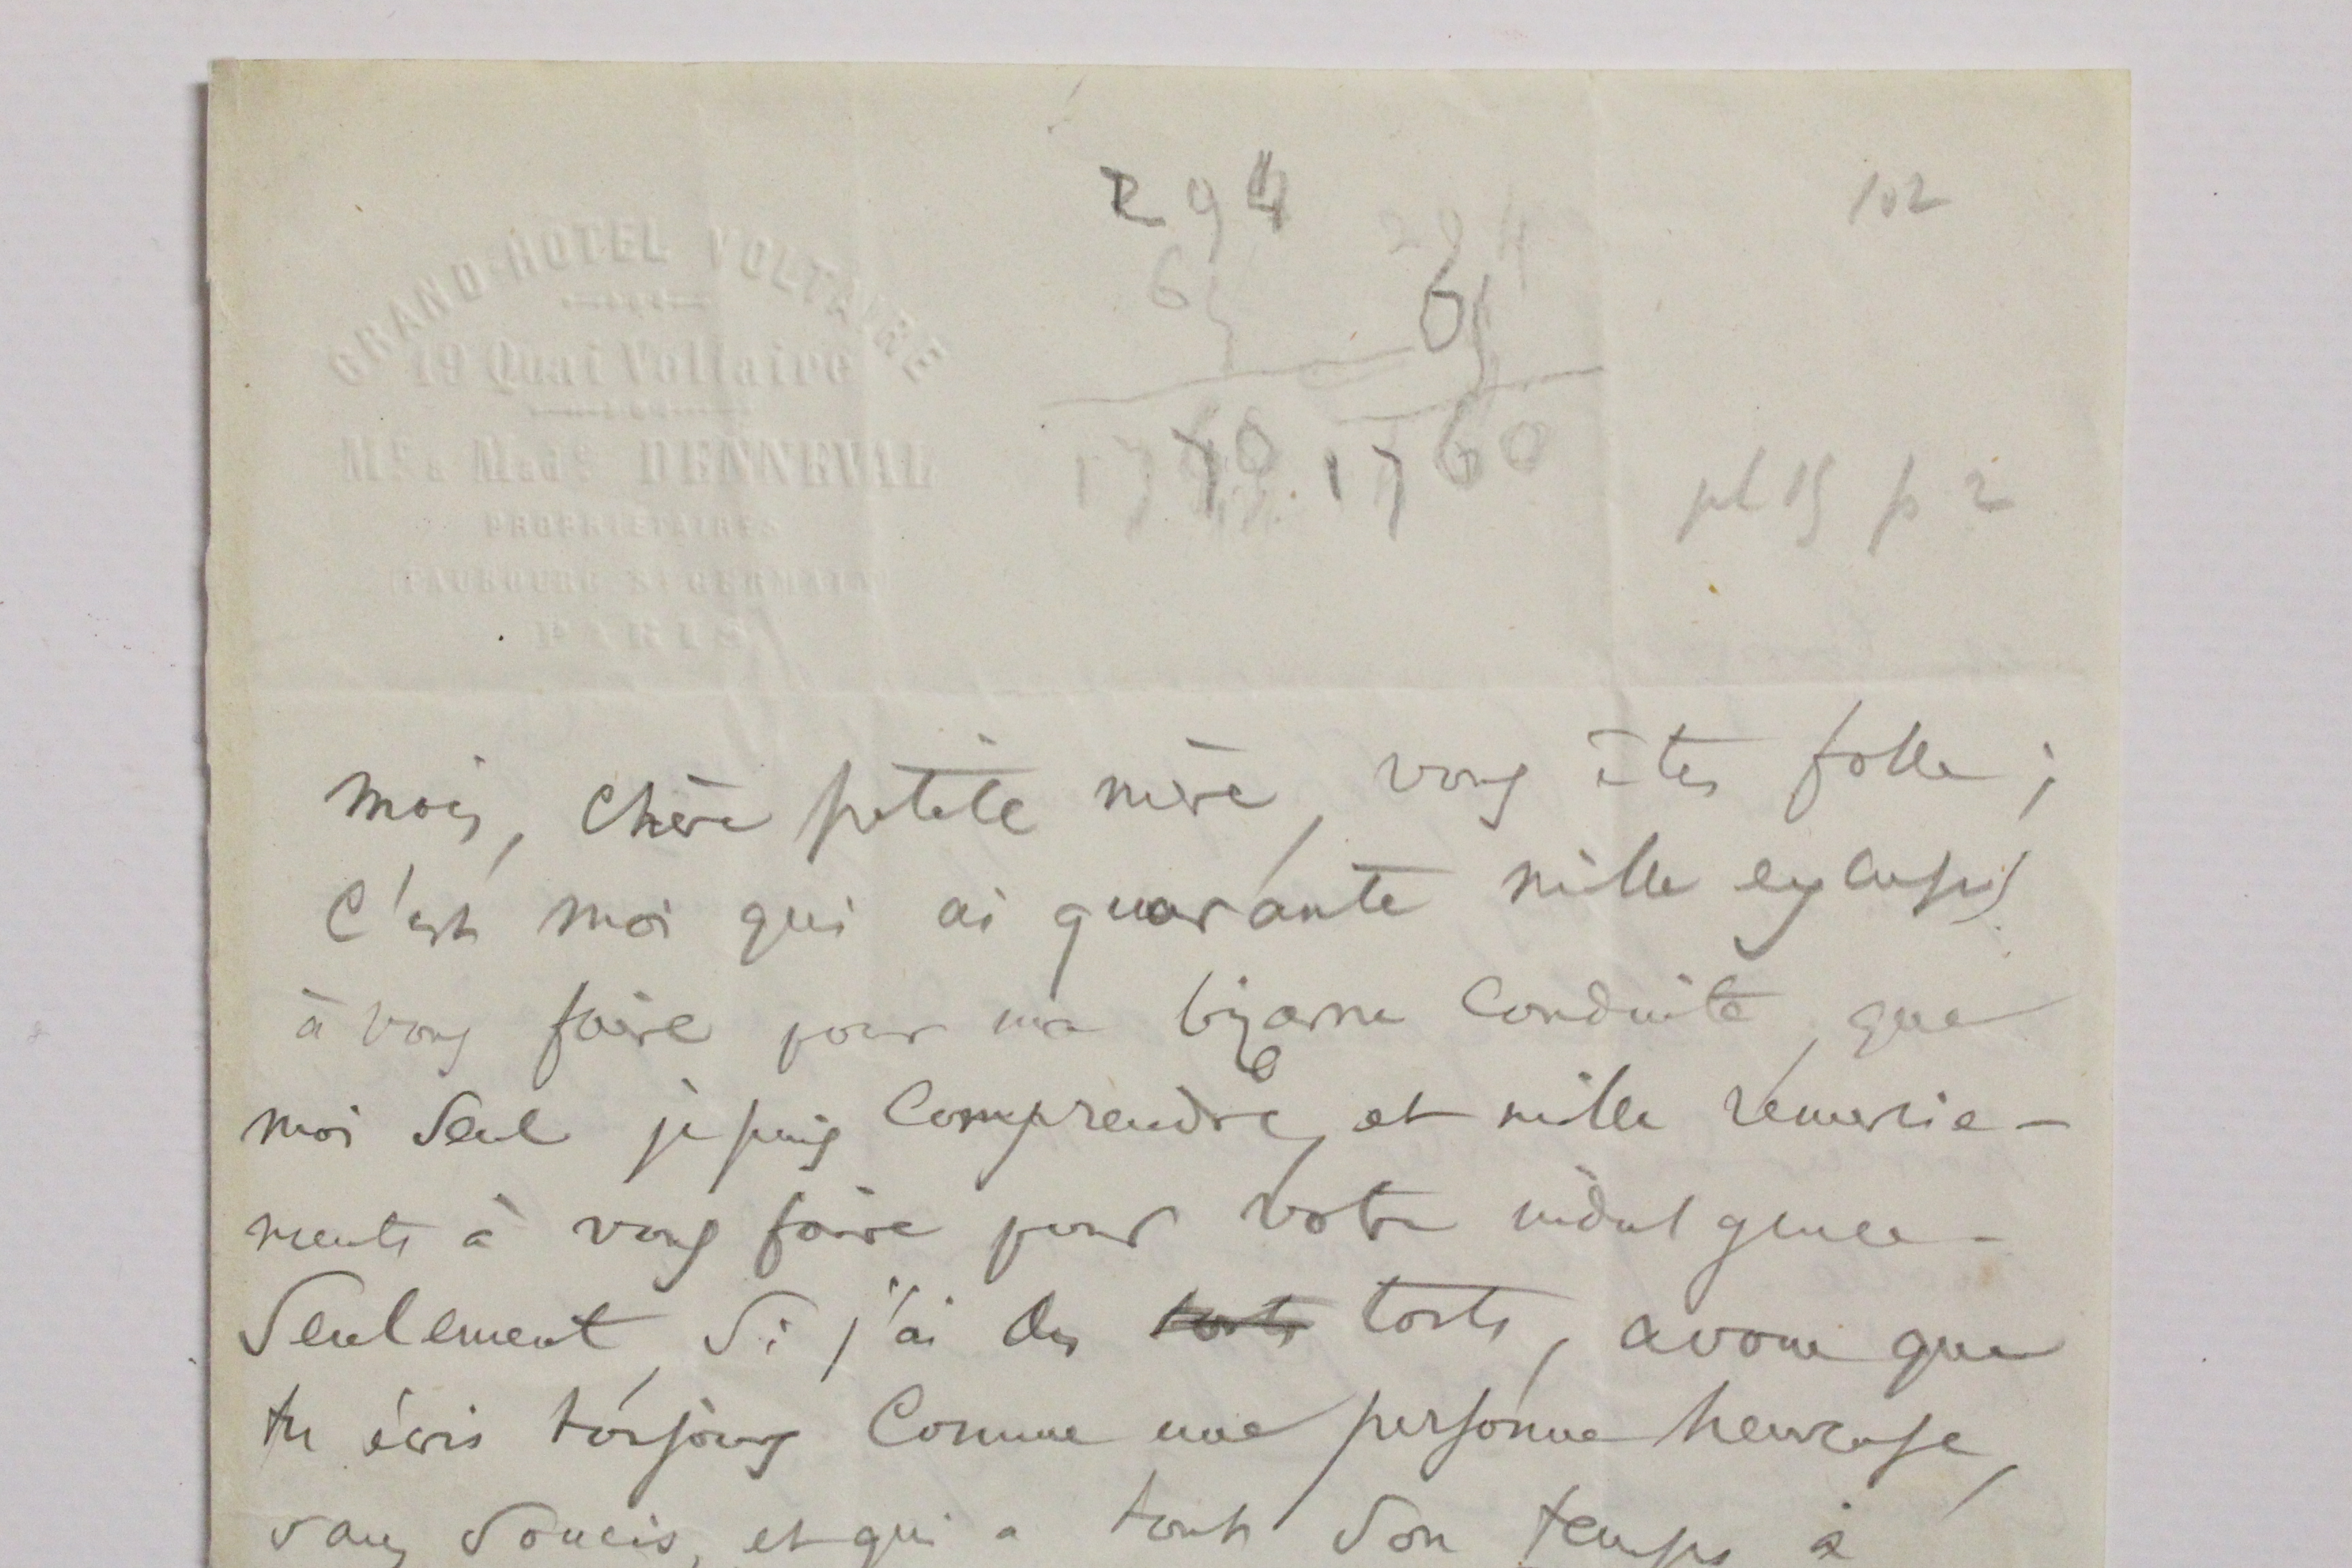 294
102
294
65
65
GRAND-HOTEL VOLTAIRE
19 Quai Voltaire
Mr & Made DENNEVAL
1760
pl 15 p 2
PROPRIÉTAIRES
FAUBOURG St GERMAIN
PARIS
Mais, Chère petite mère, vous êtes folle ;
C'est moi qui ai quarante mille excuses
à vous faire pour ma bizarre Conduite, que
moi Seul je puis Comprendre, et mille remercie-
ments à vous faire pour votre indulgence -
Seulement, Si j'ai des torts torts, avoue que
tu écris toujours Comme une personne heureuse,
sans Soucis, et qui a tout Son temps à